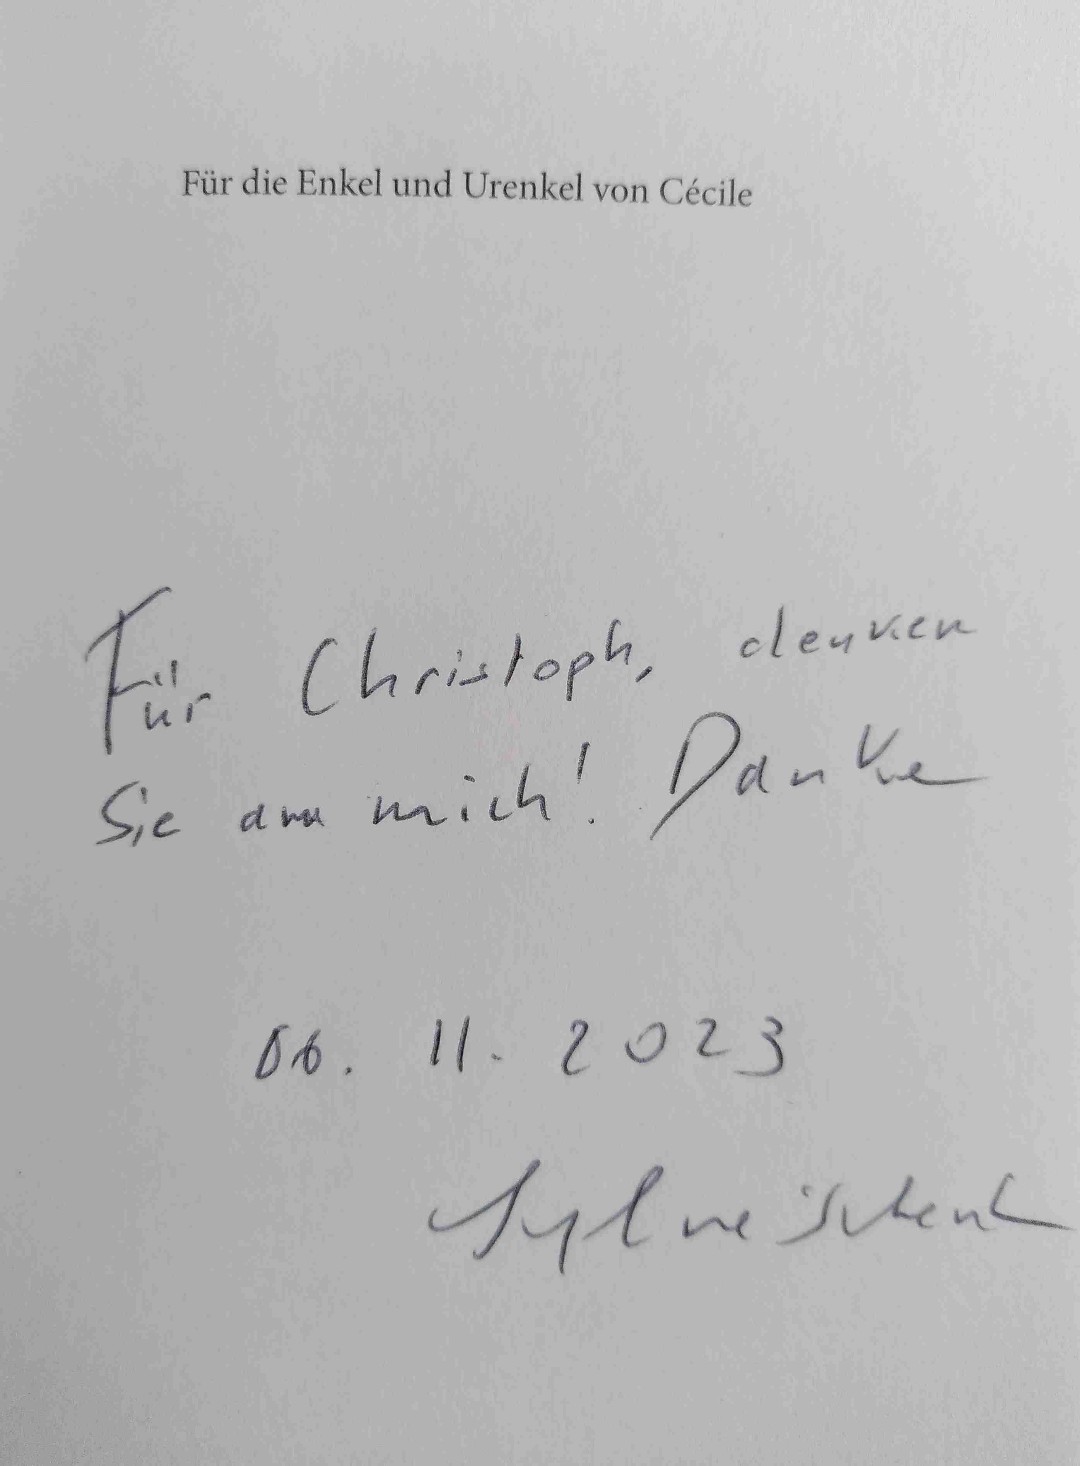 Für die Enkel und Urenkel von Cécile
Für Christoph, denken
Sie an mich! Danke
06. 11. 2023
Sylvie Schenk